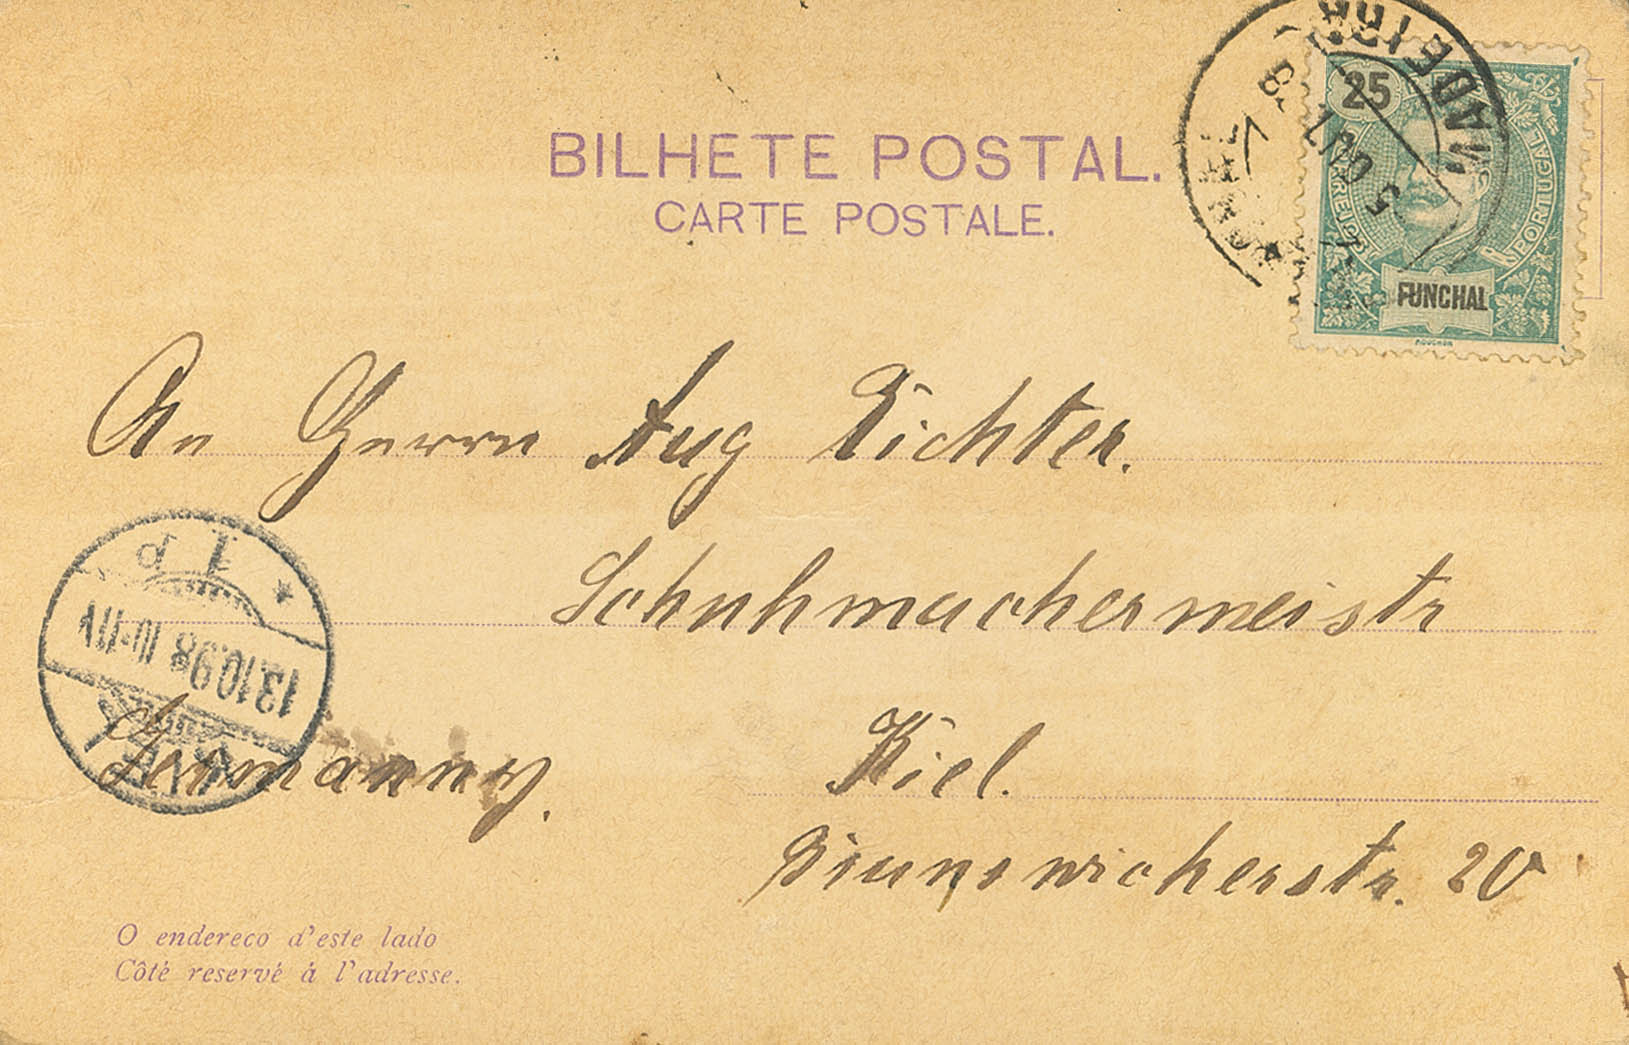 BILHETE POSTAL.
CARTE POSTALE.
25
CORREIOS
PORTUGAL
FUNCHAL
MOUCHON
MADEIRA
5 OUT 98
FUNCHAL
An Herrn Aug Richter.
Schuhmachermeistr
Kiel.
Germanny.
Brunswickerstr. 20
KIEL
13.10.98 10-11V
1 d
O endereco d'este lado
Côté reservé á l'adresse.